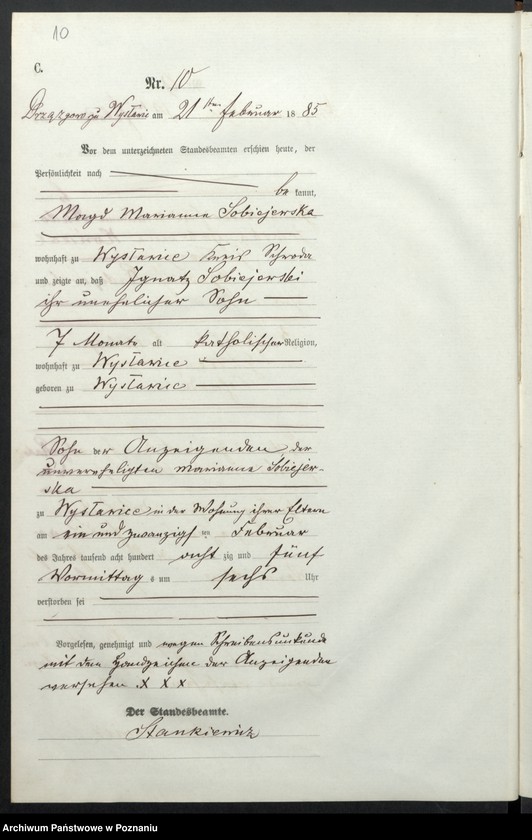 10
C.
Nr. 10
zu Wysławice am 21 ten Februar 18 85
Vor dem unterzeichneten Standesbeamten erschien heute, der
Persönlichkeit nach
be kannt,
Magd Marianna Sobiejerska
wohnhaft zu Wysławice Kreis Schroda
und zeigte an, daß Ignatz Sobiejerski
ihr unehelicher Sohn
7 Monate alt katholischer Religion,
wohnhaft zu Wysławice
geboren zu Wysławice
Sohn der Anzeigenden der
unvereheligten Marianna Sobiejer-
ska
zu Wysławice in der Wohnung ihrer Eltern
am ein und zwanzigsten Februar
des Jahres tausend acht hundert acht zig und fünf
Vormittag s um sechs Uhr
verstorben sei
Vorgelesen, genehmigt und wegen Schreibensunkunde
mit dem Handzeichen der Anzeigenden
versehen X X X
Der Standesbeamte.
Stankiewicz
Archiwum Państwowe w Poznaniu